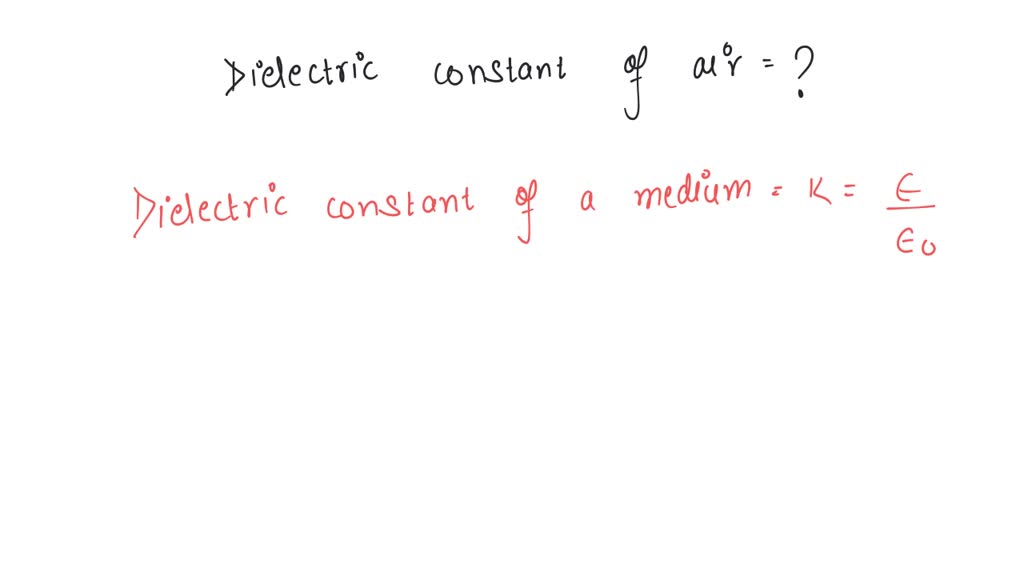 Dielectric constant of air = ?
Dielectric constant of a medium = K = ϵ / ϵ0